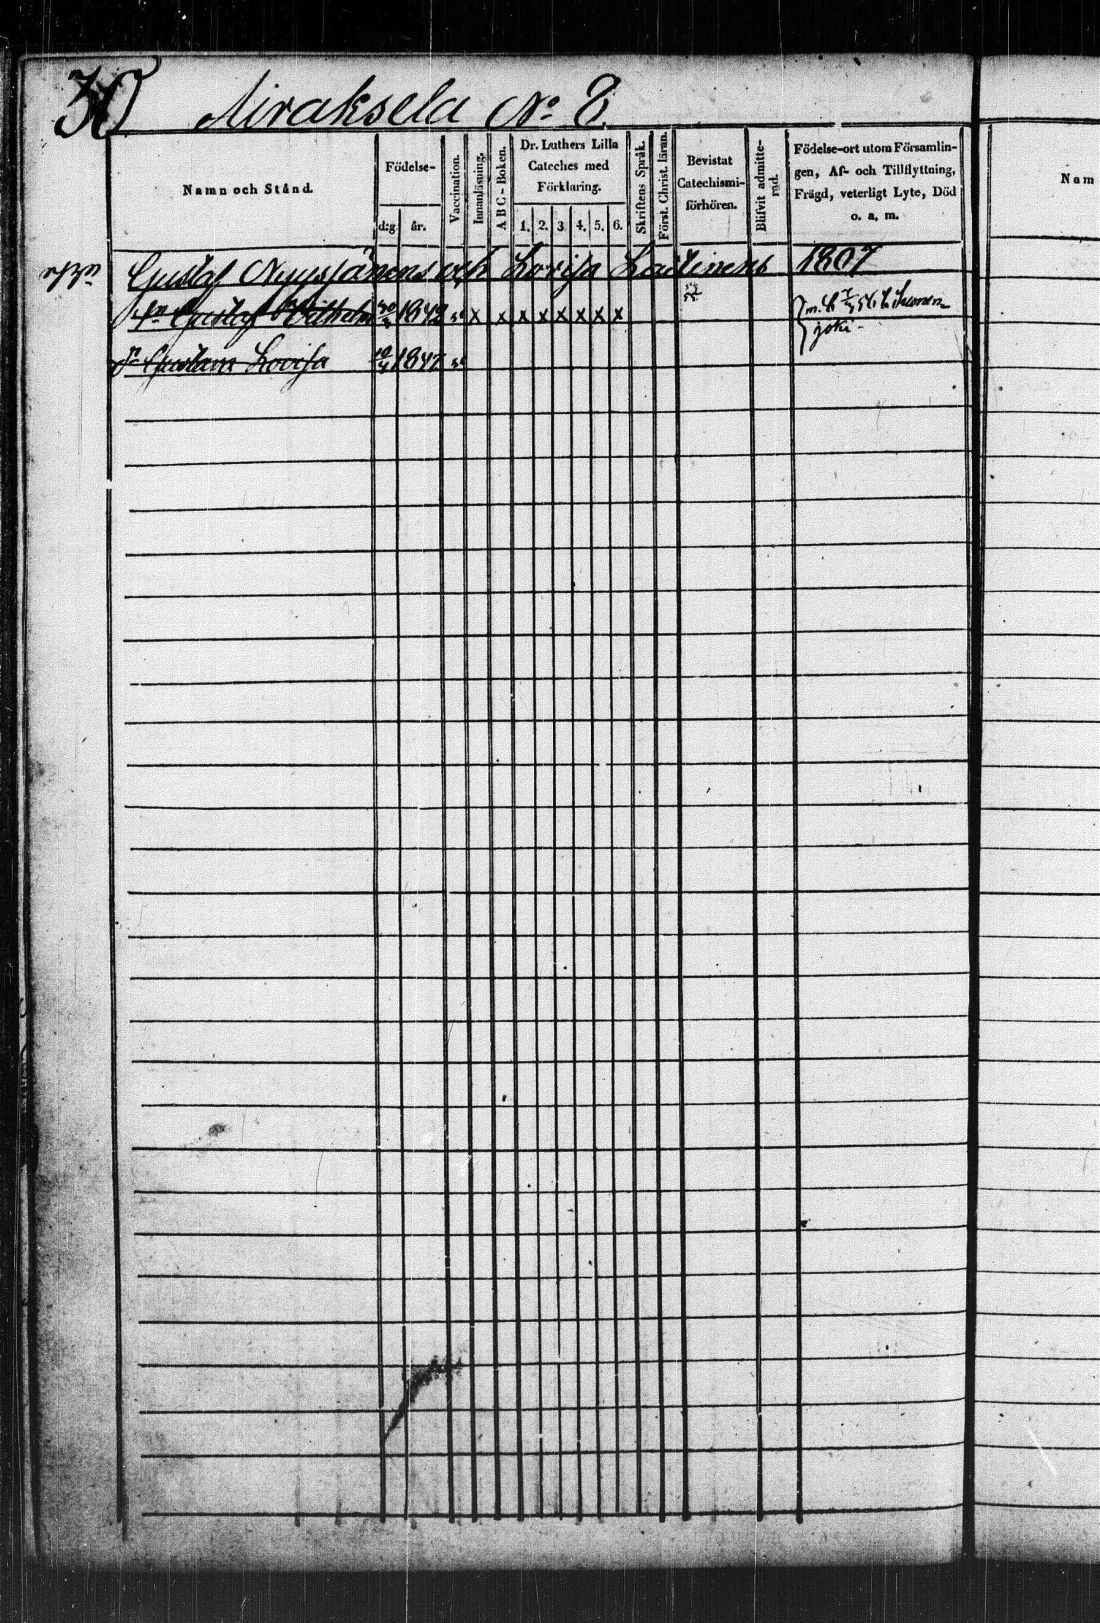 30 Airaksela No 8.
Namn och Stånd.
Födelse-
d:g år.
Vaccination.
Innanläsning.
A B C - Boken.
Dr. Luthers Lilla
Cateches med
Förklaring.
1. 2. 3. 4. 5. 6.
Skriftens Språk.
Först. Christ. läran.
Bevistat
Catechismi-
förhören.
Blifvit admitte-
rad.
Födelse-ort utom Församlin-
gen, Af- och Tillflyttning,
Frägd, veterligt Lyte, Död
o. a. m.
Nam
Gustaf Nyyssönens och Lovisa Laitinens 1807
Sn Gustaf Vilhelm 1842 x x x x x x x x
joki
Dr Gustava Lovisa 1847